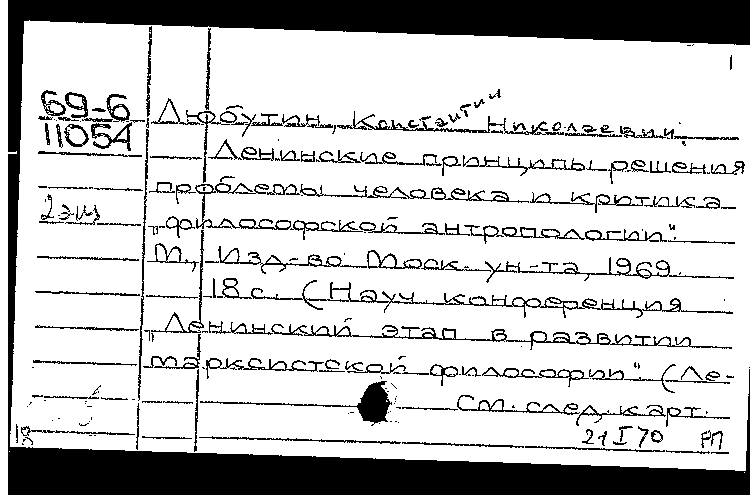 1
69-6
11054
Любутин, Константин Николаевич.
Ленинские принципы решения
проблемы человека и критика
2 экз
„философской антропологии".
М., Изд-во Моск. ун-та, 1969.
18 с. (Науч. конференция
„Ленинский этап в развитии
марксистской философии". (Ле-
См. след. карт.
21 I 70 РП